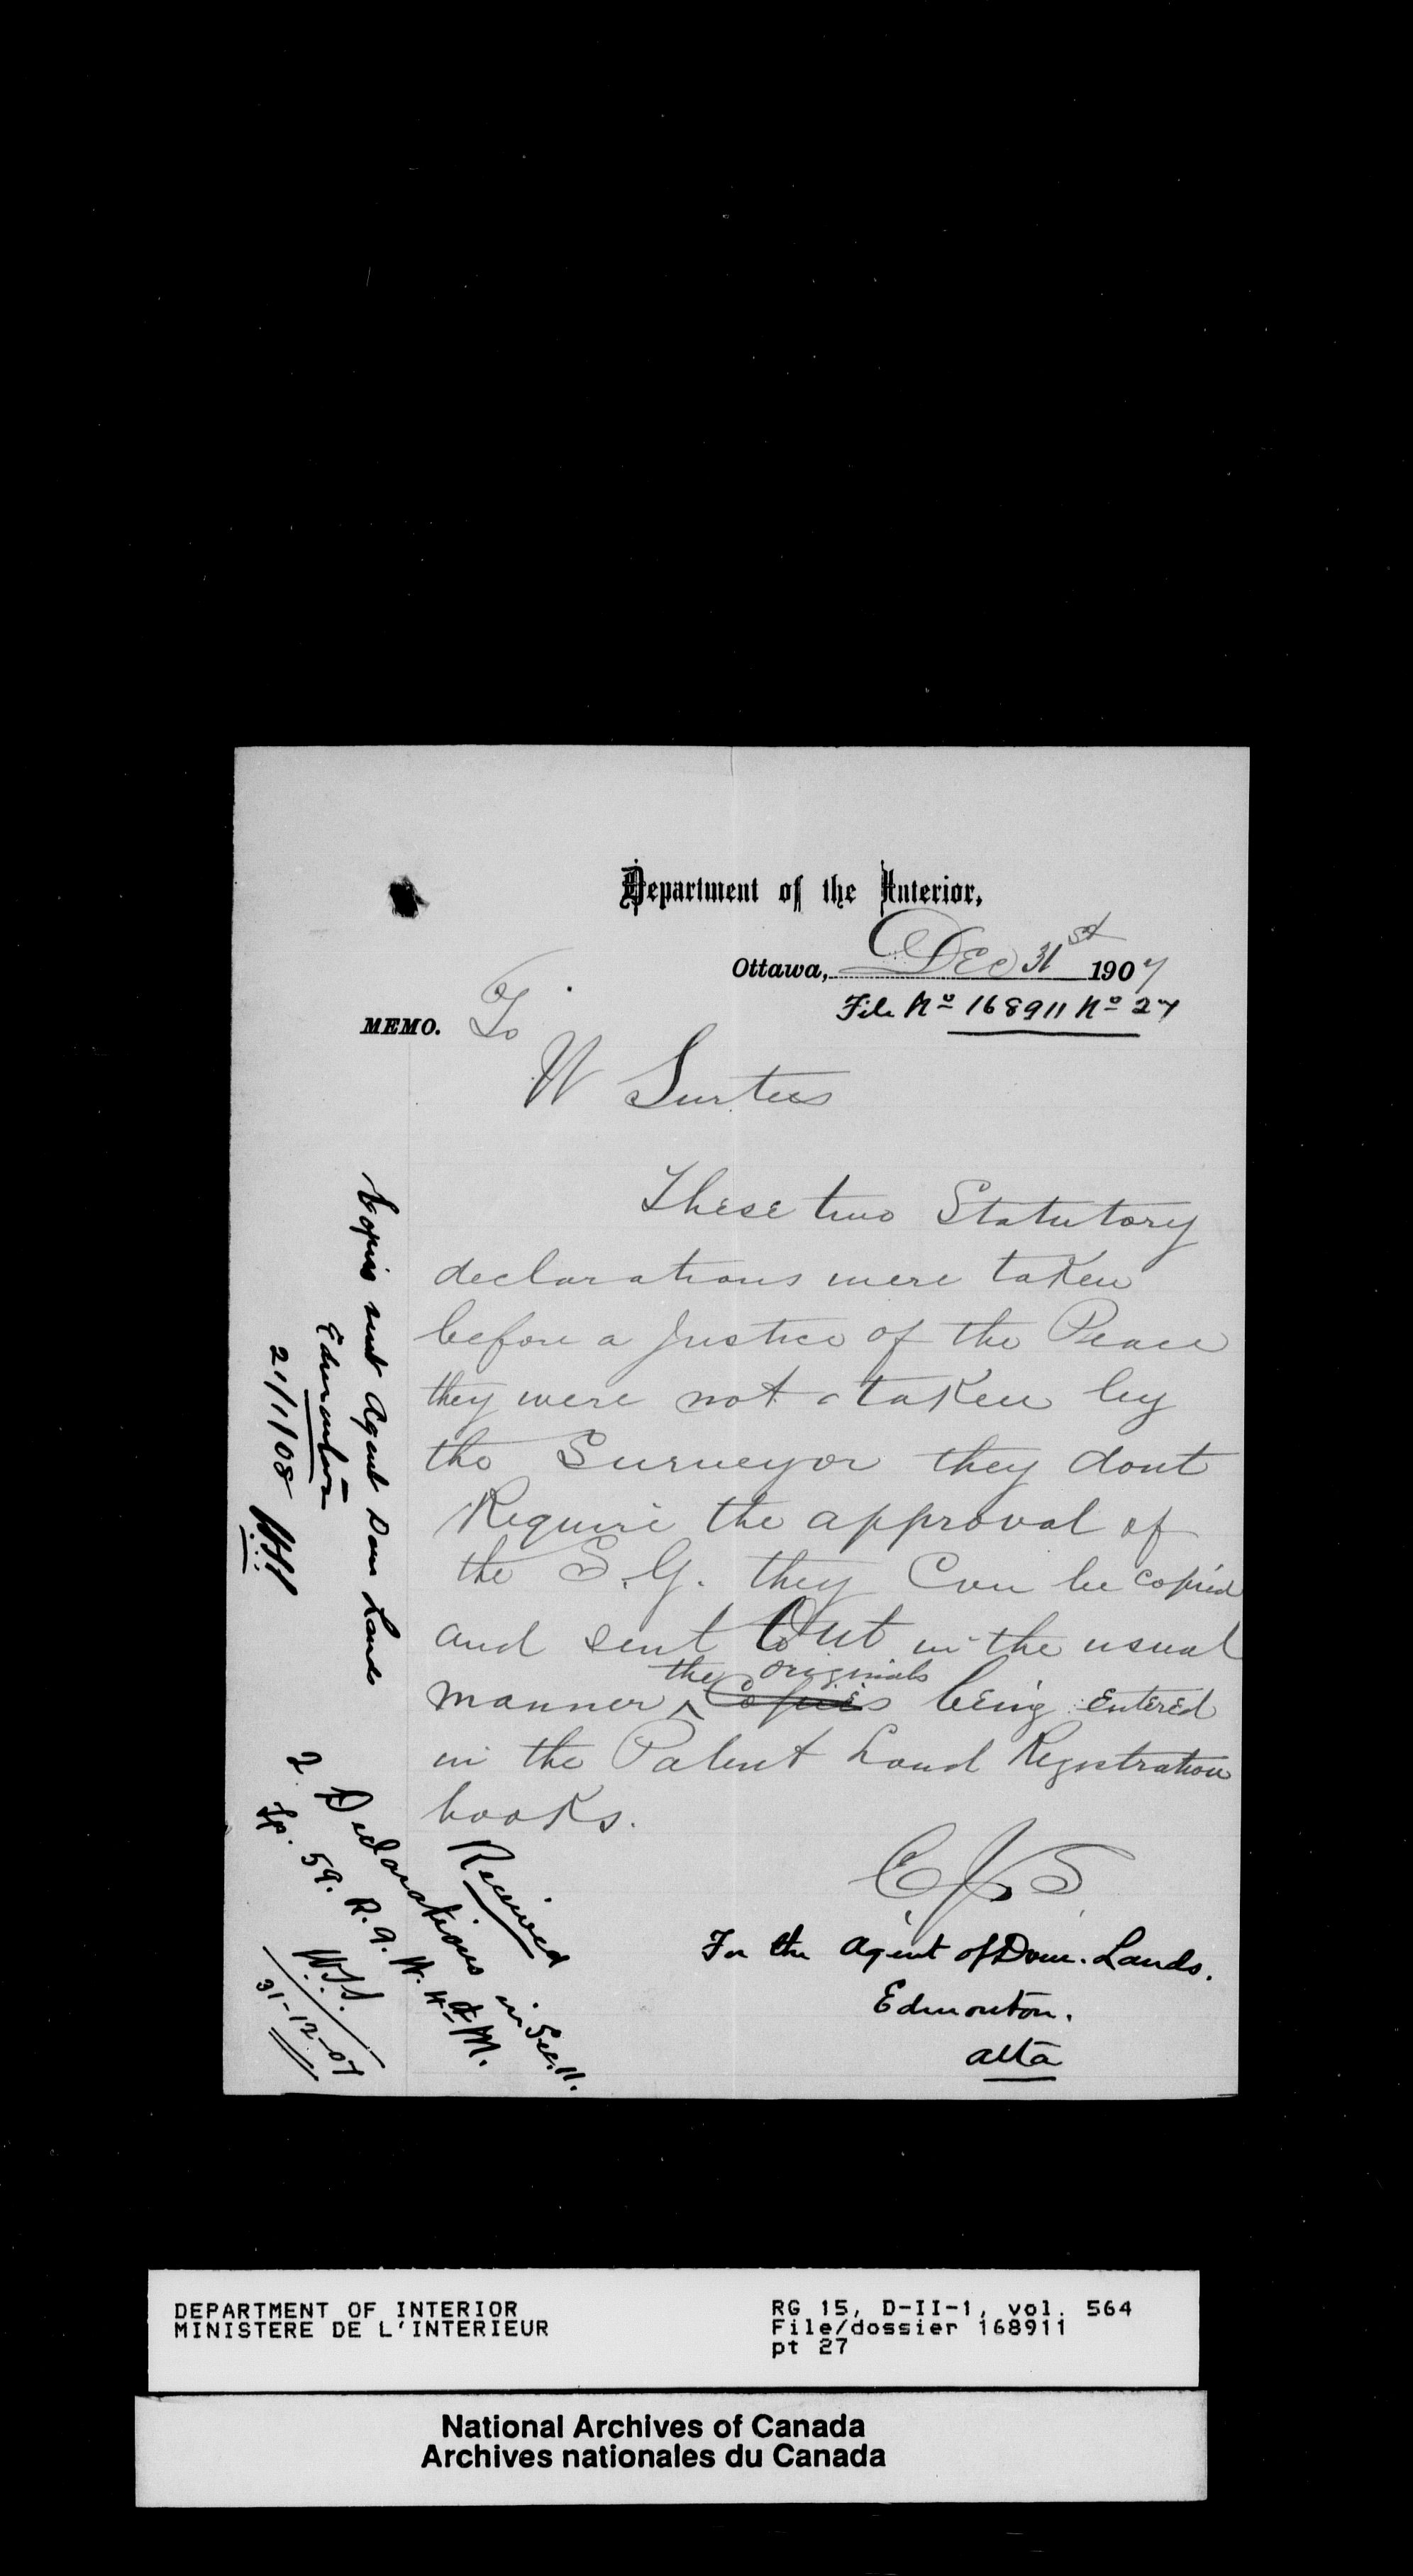 Department of the Interior,
Ottawa, Dec 31st 1907
File No 168911 No 27
MEMO. To
W Surtees
These two Statutory
declarations were taken
before a Justice of the Peace
they were not taken by
the Surveyor they dont
Require the approval of
the S.G. they Can be copied
and sent Out in the usual
the originals
manner ^ Copies being entered
in the Patent Land Registration
books.
For the Agent of Dom. Lands.
Edmonton.
Alta
Copies sent Agent Dom Lands
Edmonton
21/1/08 WSS
Received
2 Declarations in Sec. 11.
Tp. 59. R. 9. W. 4th M.
W.S.S.
31-12-07
DEPARTMENT OF INTERIOR
MINISTERE DE L'INTERIEUR
RG 15, D-II-1, vol. 564
File/dossier 168911
pt 27
National Archives of Canada
Archives nationales du Canada